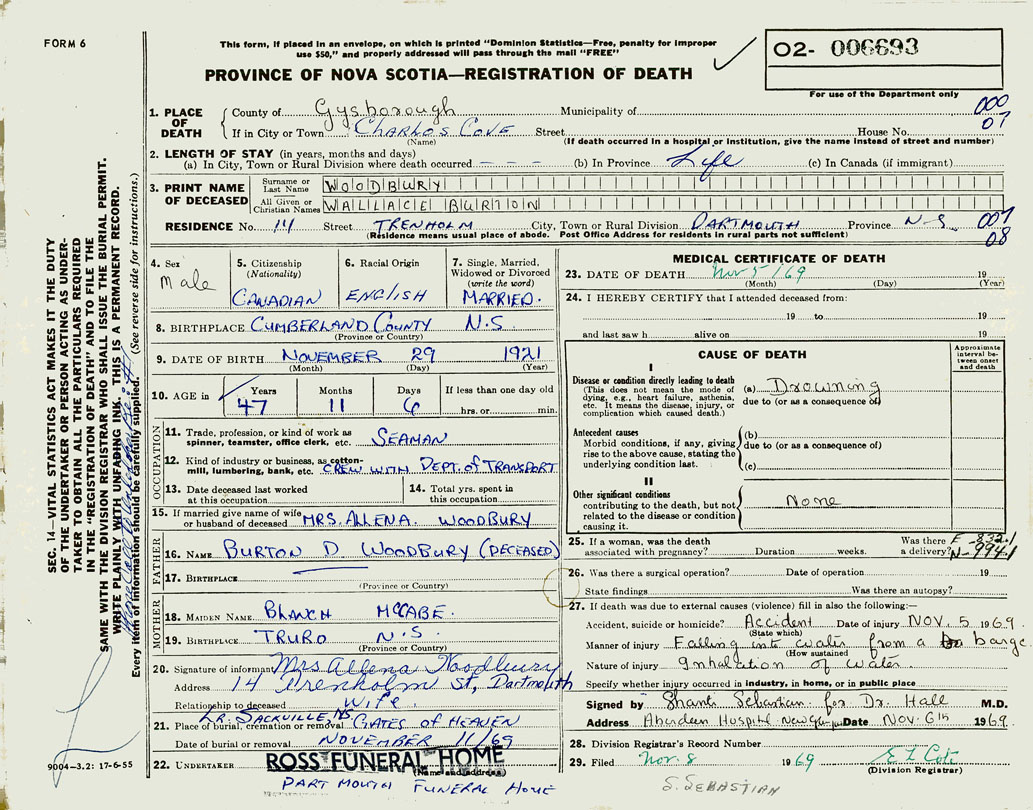 FORM 6
This form, if placed in an envelope, on which is printed "Dominion Statistics—Free, penalty for improper
use $50," and properly addressed will pass through the mail "FREE"
PROVINCE OF NOVA SCOTIA—REGISTRATION OF DEATH
O2- 006693
For use of the Department only
SEC. 14—VITAL STATISTICS ACT MAKES IT THE DUTY
OF THE UNDERTAKER OR PERSON ACTING AS UNDER-
TAKER TO OBTAIN ALL THE PARTICULARS REQUIRED
IN THE "REGISTRATION OF DEATH" AND TO FILE THE
SAME WITH THE DIVISION REGISTRAR WHO SHALL ISSUE THE BURIAL PERMIT.
WRITE PLAINLY WITH UNFADING INK. THIS IS A PERMANENT RECORD.
Every item of information should be carefully supplied. (See reverse side for instructions.)
1. PLACE OF DEATH County of Gysborough Municipality of 000
If in City or Town Charlos Cove Street House No. 07
(Name) (If death occurred in a hospital or institution, give the name instead of street and number)
2. LENGTH OF STAY (in years, months and days)
(a) In City, Town or Rural Division where death occurred - - - (b) In Province Life (c) In Canada (if immigrant)
3. PRINT NAME OF DECEASED Surname or Last Name WOODBURY
All Given or Christian Names WALLACE BURTON
RESIDENCE No. 14 Street TRENHOLM City, Town or Rural Division DARTMOUTH Province N-S 007
(Residence means usual place of abode. Post Office Address for residents in rural parts not sufficient) 08
4. Sex Male
5. Citizenship (Nationality) CANADIAN
6. Racial Origin ENGLISH
7. Single, Married, Widowed or Divorced (write the word) MARRIED.
8. BIRTHPLACE CUMBERLAND COUNTY N.S.
(Province or Country)
9. DATE OF BIRTH NOVEMBER 29 1921
(Month) (Day) (Year)
10. AGE in Years 47 Months 11 Days 6 If less than one day old hrs. or min.
OCCUPATION
11. Trade, profession, or kind of work as
spinner, teamster, office clerk, etc. SEAMAN
12. Kind of industry or business, as cotton-
mill, lumbering, bank, etc. CREW WITH DEPT. OF TRANSPORT
13. Date deceased last worked at this occupation
14. Total yrs. spent in this occupation
15. If married give name of wife
or husband of deceased MRS. ALLENA WOODBURY
FATHER
16. NAME BURTON D WOODBURY (DECEASED)
17. BIRTHPLACE
(Province or Country)
MOTHER
18. MAIDEN NAME BLANCH MCCABE.
19. BIRTHPLACE TRURO N.S.
(Province or Country)
20. Signature of informant Mrs Allena Woodbury
Address 14 Trenholm St, Dartmouth
Relationship to deceased Wife.
LR. SACKVILLE, NS
21. Place of burial, cremation or removal GATES OF HEAVEN
Date of burial or removal NOVEMBER 11/69
22. UNDERTAKER ROSS FUNERAL HOME
(Name and address)
DARTMOUTH FUNERAL HOME
9004-3.2: 17-6-55
MEDICAL CERTIFICATE OF DEATH
23. DATE OF DEATH Nov 5/69 19
(Month) (Day) (Year)
24. I HEREBY CERTIFY that I attended deceased from:
19 to 19
and last saw h alive on 19
CAUSE OF DEATH
Approximate interval between onset and death
I
Disease or condition directly leading to death (a) Drowning
(This does not mean the mode of dying, e.g., heart failure, asthenia, etc. It means the disease, injury, or complication which caused death.)
due to (or as a consequence of)
Antecedent causes
Morbid conditions, if any, giving rise to the above cause, stating the underlying condition last.
(b)
due to (or as a consequence of)
(c)
II
Other significant conditions
contributing to the death, but not related to the disease or condition causing it.
None
25. If a woman, was the death Was there E-832.1
associated with pregnancy? Duration weeks. a delivery? N-994.1
26. Was there a surgical operation? Date of operation 19
State findings Was there an autopsy?
27. If death was due to external causes (violence) fill in also the following:—
Accident, suicide or homicide? Accident Date of injury NOV. 5 1969.
(State which)
Manner of injury Falling into water from a barge
(How sustained)
Nature of injury Inhalation of water
Specify whether injury occurred in industry, in home, or in public place
Signed by Shanti Sebastian for Dr. Hall M.D.
Address Aberdeen Hospital Date Nov. 6th 1969.
28. Division Registrar's Record Number
29. Filed Nov. 8 1969
(Division Registrar)
S. SEBASTIAN